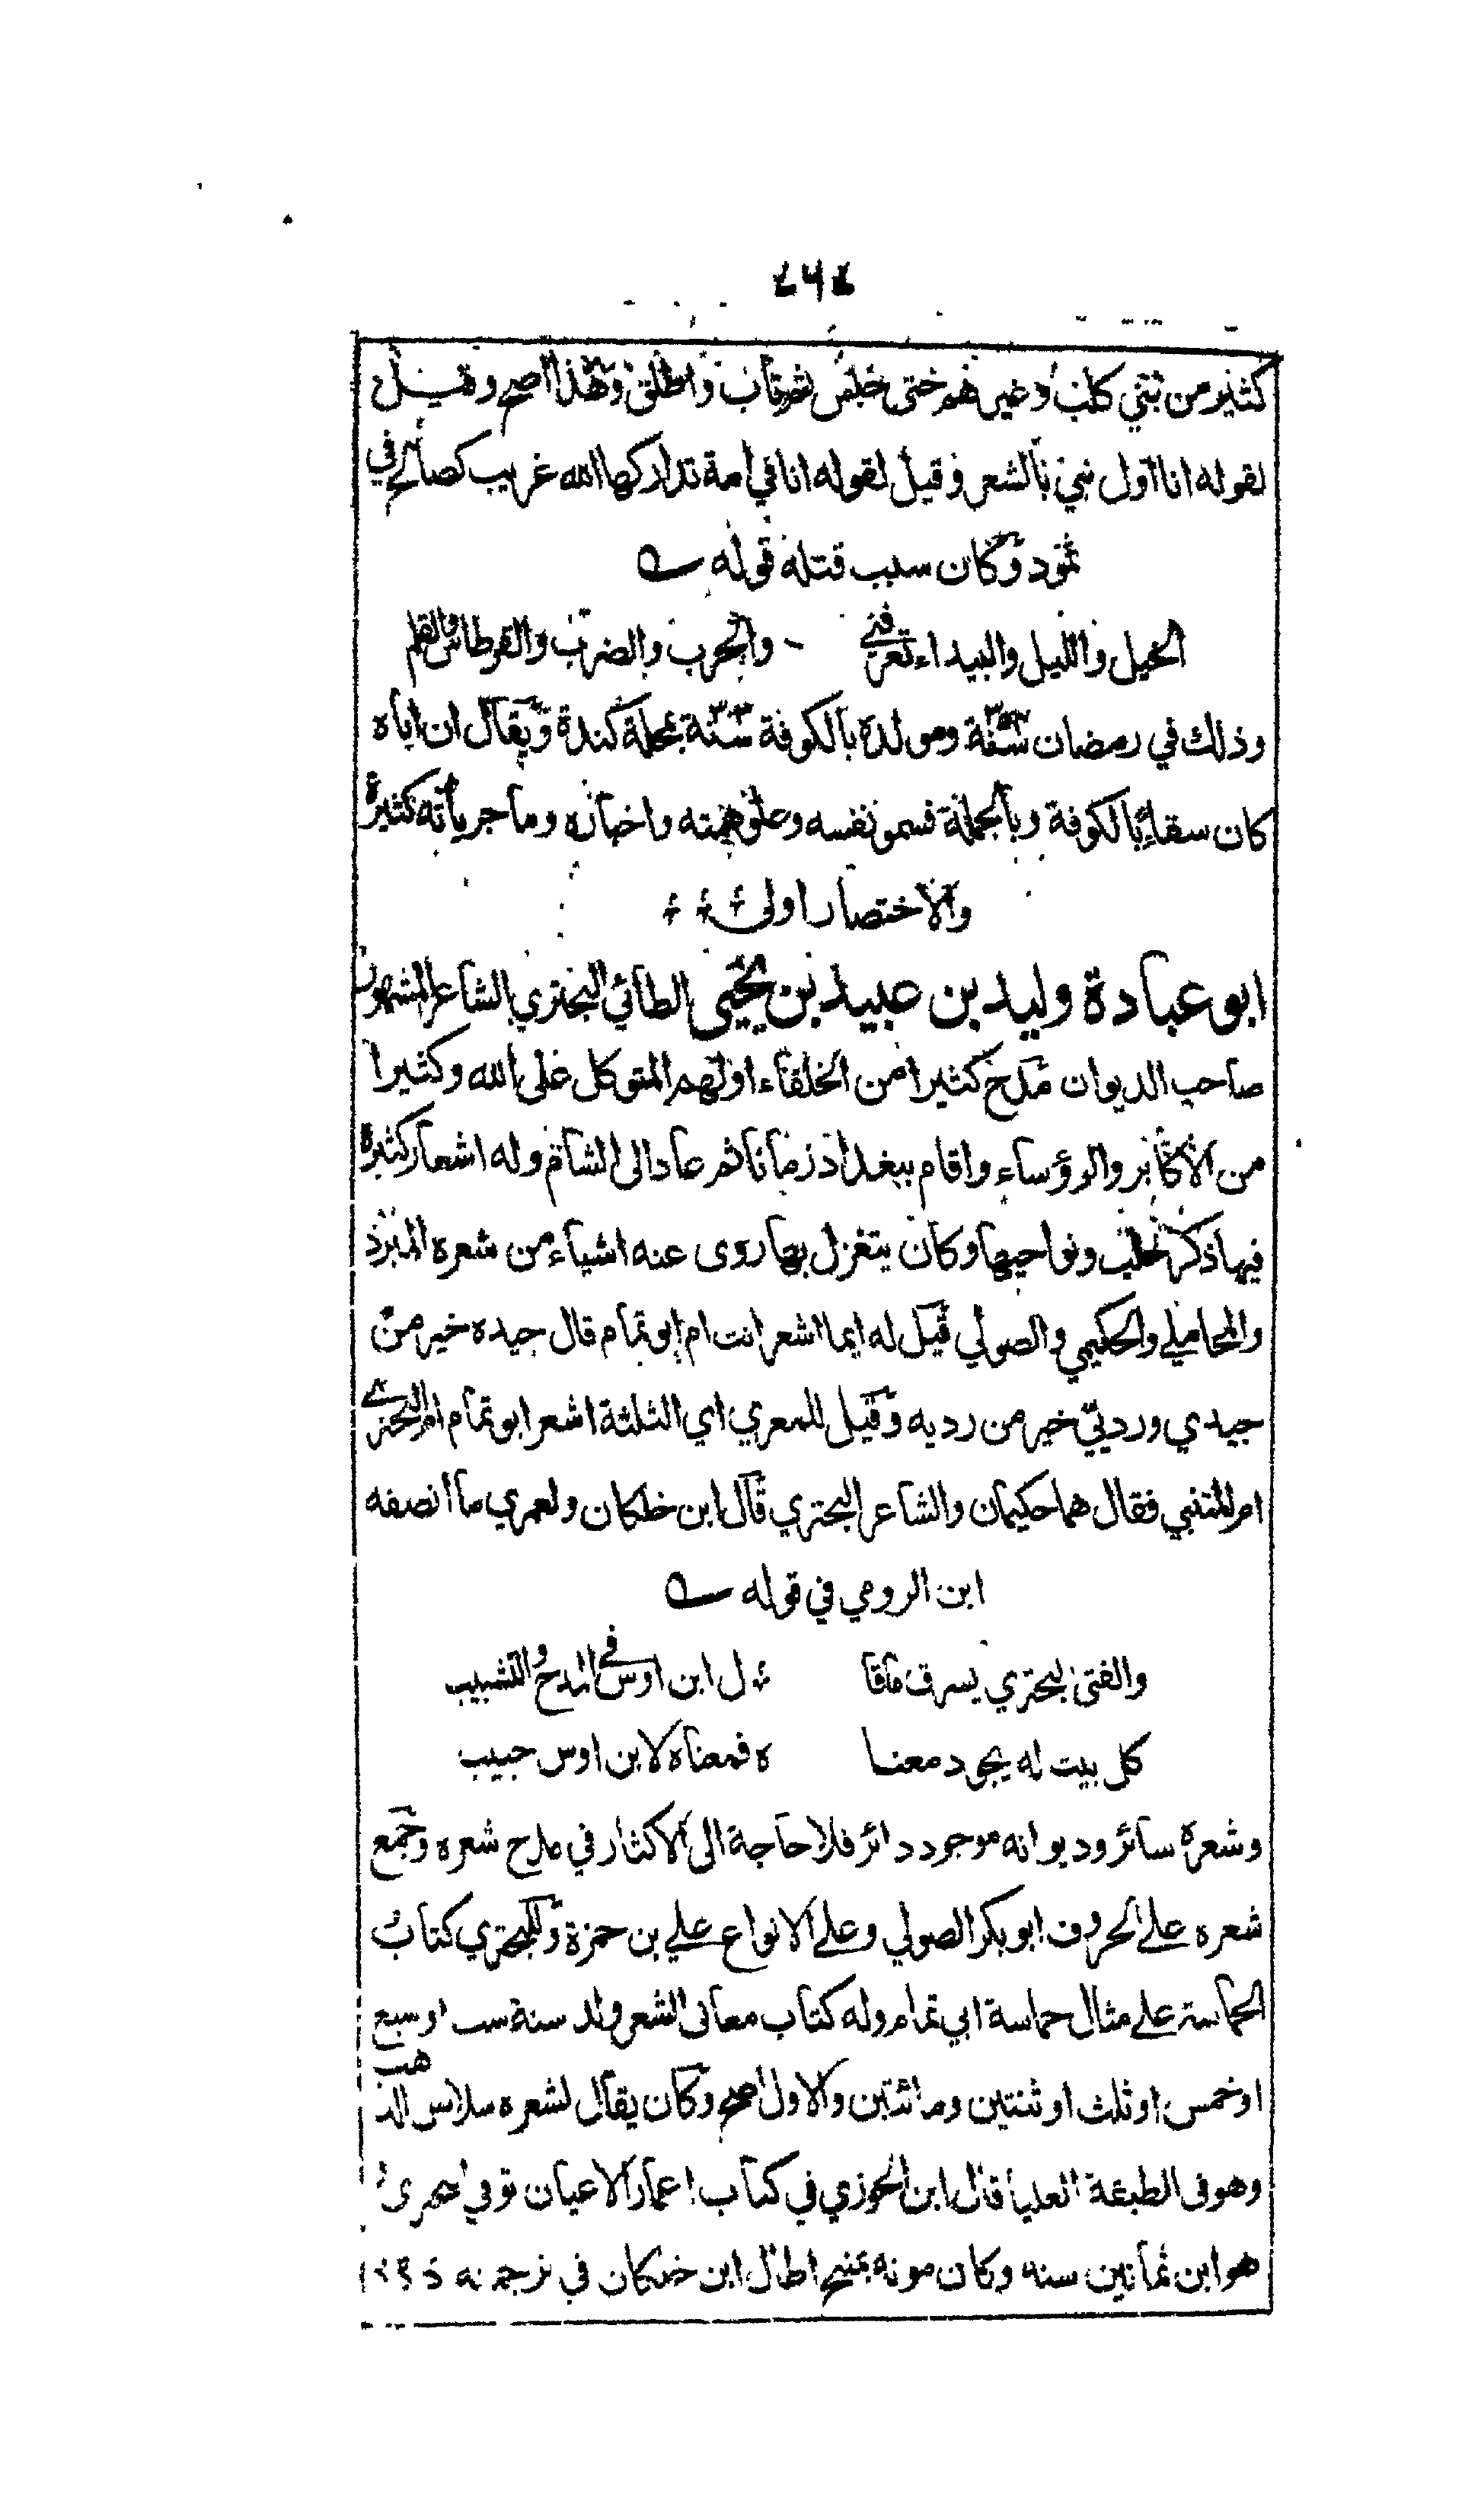 ٤٦٤
كثير من بني كلب وغيرهم حتى خلص ثم تاب واطلق وهذا اصح وقيل
لقوله انا اول شيء بالشعر وقيل لقوله انا في امة تداركها الله غريب كصالح في
ثمود وكان سبب قتله قوله
الخيل والليل والبيداء تعرفني والحرب والضرب والقرطاس والقلم
وذلك في رمضان سنة ومولده بالكوفة سنة بمحلة كندة ويقال ان اباه
كان سقاء بالكوفة وبالجملة فسمو نفسه وعلو همته واخباره وما جرياته كثيرة
والاختصار اولى
ابو عبادة وليد بن عبيد بن يحيى الطائي البحتري الشاعر المشهور
صاحب الديوان مدح كثيرا من الخلفاء اولهم المتوكل على الله وكثيرا
من الاكابر والرؤساء واقام ببغداد زمانا ثم عاد الى الشام وله اشعار كثيرة
فيها ذكر حلب ونواحيها وكان يتغزل بها روى عنه اشياء من شعره المبرد
والمحاملي والحكيمي والصولي قيل له ايما اشعر انت ام ابو تمام قال جيده خير من
جيدي ورديي خير من رديه وقيل للمعري اي الثلثة اشعر ابو تمام ام البحتري
ام المتنبي فقال هما حكيمان والشاعر البحتري قال ابن خلكان ولعمري ما انصفه
ابن الرومي في قوله
والفتى البحتري يسرق ماقا ل ابن اوس في المدح والتشبيب
كل بيت له يجود معنا ه فمعناه لابن اوس حبيب
وشعره سائر وديوانه موجود دائر فلا حاجة الى الاكثار في مدح شعره وجمع
شعره على الحروف ابو بكر الصولي وعلى الانواع علي بن حمزة وللبحتري كتاب
الحماسة على مثال حماسة ابي تمام وله كتاب معاني الشعر ولد سنة ست او سبع
او خمس او ثلث او ثنتين ومائتين والاول اصح وكان يقال لشعره سلاسل الذهب
وهو في الطبقة العليا قال ابن الجوزي في كتاب اعمار الاعيان توفي البحتري
هو ابن ثمانين سنه وكان موته بمنبج اطال ابن خلكان في ترجمته